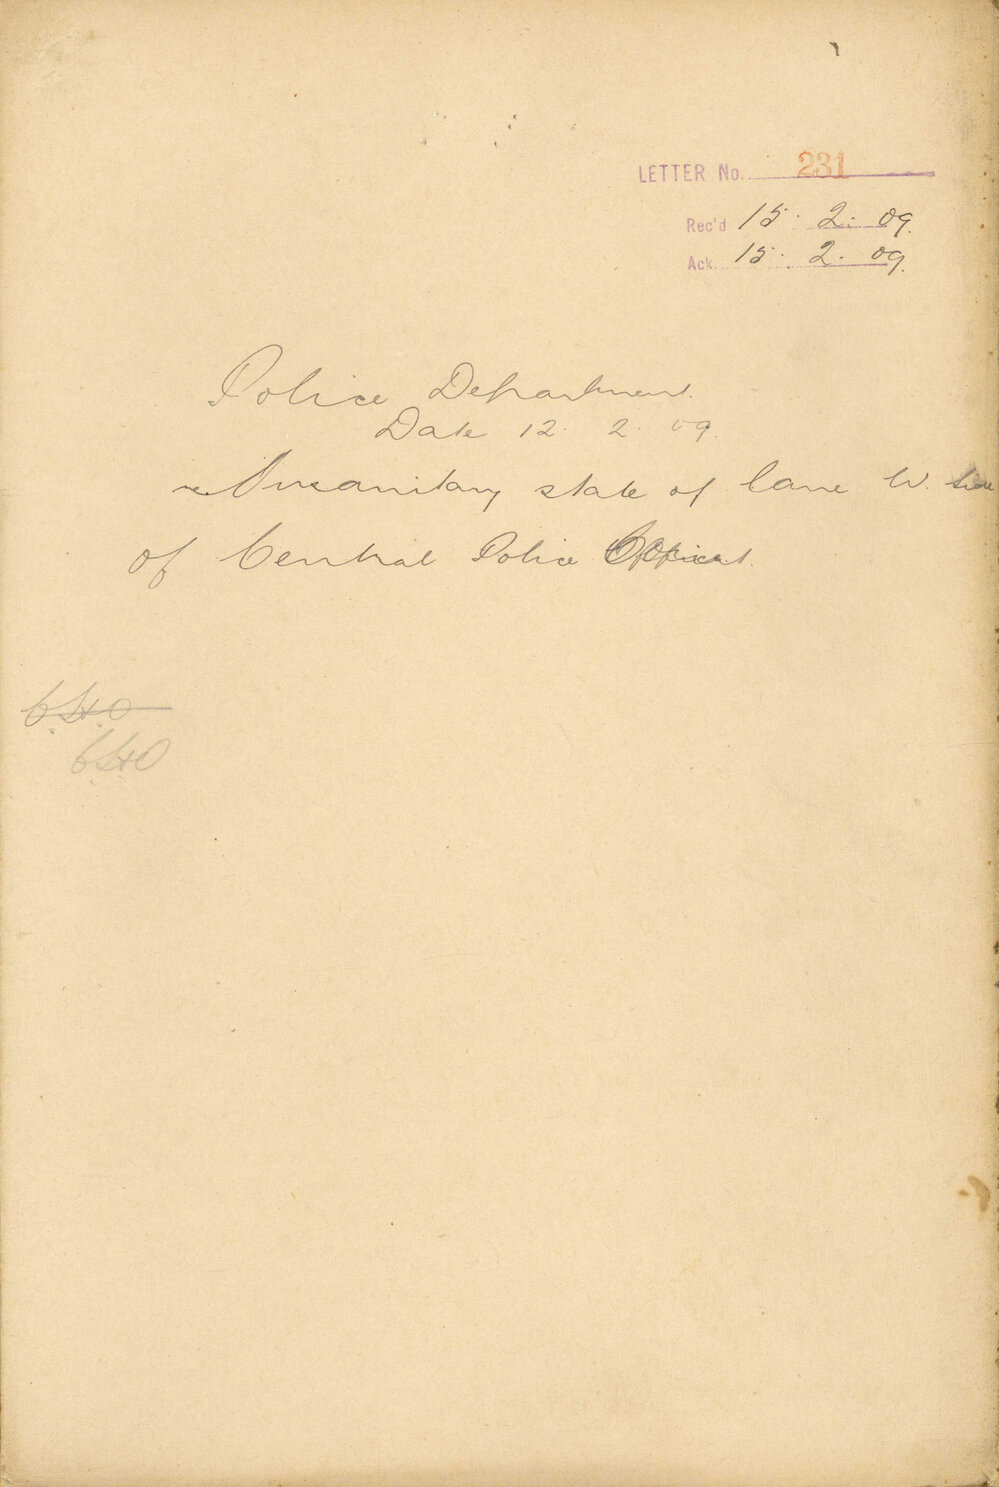 LETTER No. 231
Rec'd 15. 2. 09.
Ack. 15. 2. 09.
Police Department.
Date 12. 2. 09.
re Insanitary state of lane W. Side
of Central Police Offices.
C.H.O
C.H.O